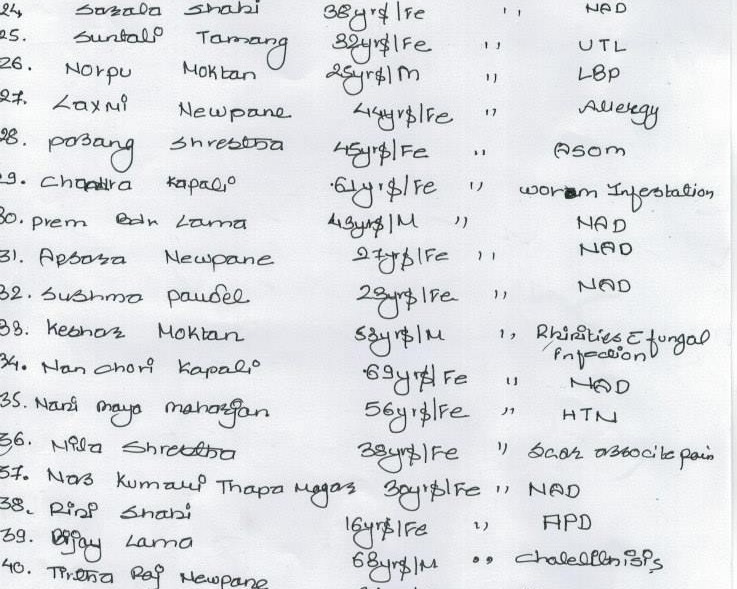 24. Sarala Shahi 38yrs/Fe ,, NAD
25. Suntali Tamang 32yrs/Fe ,, UTL
26. Norpu Moktan 25yrs/M ,, LBP
27. Laxmi Newpane 44yrs/Fe ,, Allergy
28. porang Shrestha 45yrs/Fe ,, ASOM
29. Chandra Kapali 61yrs/Fe ,, worm Infestation
30. Prem Bdr Lama 43yrs/M ,, NAD
31. Apsara Newpane 27yrs/Fe ,, NAD
32. Sushma paudel 29yrs/Fe ,, NAD
33. Keshar Moktan 53yrs/M ,, Rhinities & fungal
Infection
34. Nan chori Kapali 69yrs/Fe ,, NAD
35. Nani maya maharjan 56yrs/Fe ,, HTN
36. Mila Shrestha 38yrs/Fe ,, Scar associte pain
37. Nar Kumari Thapa Magar 30yrs/Fe ,, NAD
38. Shahi 16yrs/Fe ,, APD
39. Bijay Lama 68yrs/M ,,
40. Raj Newpane